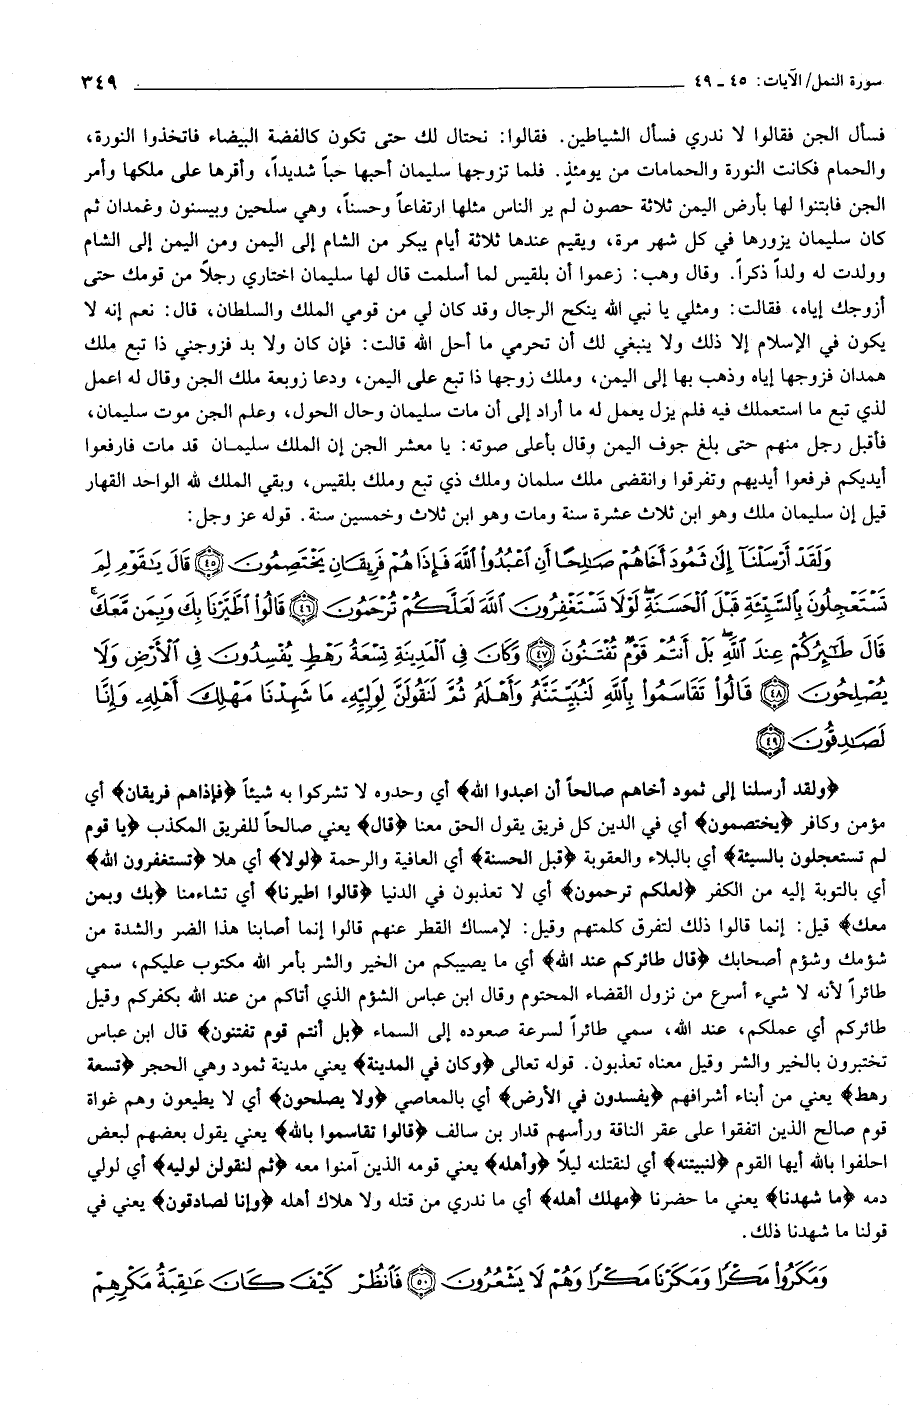 سورة النمل/ الآيات: ٤٥ ـ ٤٩ ٣٤٩
فسأل الجن فقالوا لا ندري فسأل الشياطين. فقالوا: نحتال لك حتى تكون كالفضة البيضاء فاتخذوا النورة،
والحمام فكانت النورة والحمامات من يومئذٍ. فلما تزوجها سليمان أحبها حباً شديداً، وأقرها على ملكها وأمر
الجن فابتنوا لها بأرض اليمن ثلاثة حصون لم ير الناس مثلها ارتفاعاً وحسناً، وهي سلحين وبيسنون وغمدان ثم
كان سليمان يزورها في كل شهر مرة، ويقيم عندها ثلاثة أيام يبكر من الشام إلى اليمن ومن اليمن إلى الشام
وولدت له ولداً ذكراً. وقال وهب: زعموا أن بلقيس لما أسلمت قال لها سليمان اختاري رجلاً من قومك حتى
أزوجك إياه، فقالت: ومثلي يا نبي الله ينكح الرجال وقد كان لي من قومي الملك والسلطان، قال: نعم إنه لا
يكون في الإسلام إلا ذلك ولا ينبغي لك أن تحرمي ما أحل الله قالت: فإن كان ولا بد فزوجني ذا تبع ملك
همدان فزوجها إياه وذهب بها إلى اليمن، وملك زوجها ذا تبع على اليمن، ودعا زوبعة ملك الجن وقال له اعمل
لذي تبع ما استعملك فيه فلم يزل يعمل له ما أراد إلى أن مات سليمان وحال الحول، وعلم الجن موت سليمان،
فأقبل رجل منهم حتى بلغ جوف اليمن وقال بأعلى صوته: يا معشر الجن إن الملك سليمان قد مات فارفعوا
أيديكم فرفعوا أيديهم وتفرقوا وانقضى ملك سلمان وملك ذي تبع وملك بلقيس، وبقي الملك لله الواحد القهار
قيل إن سليمان ملك وهو ابن ثلاث عشرة سنة ومات وهو ابن ثلاث وخمسين سنة. قوله عز وجل:
وَلَقَدْ أَرْسَلْنَآ إِلَىٰ ثَمُودَ أَخَاهُمْ صَٰلِحًا أَنِ ٱعْبُدُوا۟ ٱللَّهَ فَإِذَا هُمْ فَرِيقَانِ يَخْتَصِمُونَ ۝٤٥ قَالَ يَٰقَوْمِ لِمَ
تَسْتَعْجِلُونَ بِٱلسَّيِّئَةِ قَبْلَ ٱلْحَسَنَةِ ۖ لَوْلَا تَسْتَغْفِرُونَ ٱللَّهَ لَعَلَّكُمْ تُرْحَمُونَ ۝٤٦ قَالُوا۟ ٱطَّيَّرْنَا بِكَ وَبِمَن مَّعَكَ ۚ
قَالَ طَٰٓئِرُكُمْ عِندَ ٱللَّهِ ۖ بَلْ أَنتُمْ قَوْمٌ تُفْتَنُونَ ۝٤٧ وَكَانَ فِى ٱلْمَدِينَةِ تِسْعَةُ رَهْطٍ يُفْسِدُونَ فِى ٱلْأَرْضِ وَلَا
يُصْلِحُونَ ۝٤٨ قَالُوا۟ تَقَاسَمُوا۟ بِٱللَّهِ لَنُبَيِّتَنَّهُۥ وَأَهْلَهُۥ ثُمَّ لَنَقُولَنَّ لِوَلِيِّهِۦ مَا شَهِدْنَا مَهْلِكَ أَهْلِهِۦ وَإِنَّا
لَصَٰدِقُونَ ۝٤٩
﴿ولقد أرسلنا إلى ثمود أخاهم صالحاً أن اعبدوا الله﴾ أي وحدوه لا تشركوا به شيئاً ﴿فإذاهم فريقان﴾ أي
مؤمن وكافر ﴿يختصمون﴾ أي في الدين كل فريق يقول الحق معنا ﴿قال﴾ يعني صالحاً للفريق المكذب ﴿يا قوم
لم تستعجلون بالسيئة﴾ أي بالبلاء والعقوبة ﴿قبل الحسنة﴾ أي العافية والرحمة ﴿لولا﴾ أي هلا ﴿تستغفرون الله﴾
أي بالتوبة إليه من الكفر ﴿لعلكم ترحمون﴾ أي لا تعذبون في الدنيا ﴿قالوا اطيرنا﴾ أي تشاءمنا ﴿بك وبمن
معك﴾ قيل: إنما قالوا ذلك لتفرق كلمتهم وقيل: لإمساك القطر عنهم قالوا إنما أصابنا هذا الضر والشدة من
شؤمك وشؤم أصحابك ﴿قال طائركم عند الله﴾ أي ما يصيبكم من الخير والشر بأمر الله مكتوب عليكم، سمي
طائراً لأنه لا شيء أسرع من نزول القضاء المحتوم وقال ابن عباس الشؤم الذي أتاكم من عند الله بكفركم وقيل
طائركم أي عملكم، عند الله، سمي طائراً لسرعة صعوده إلى السماء ﴿بل أنتم قوم تفتنون﴾ قال ابن عباس
تختبرون بالخير والشر وقيل معناه تعذبون. قوله تعالى ﴿وكان في المدينة﴾ يعني مدينة ثمود وهي الحجر ﴿تسعة
رهط﴾ يعني من أبناء أشرافهم ﴿يفسدون في الأرض﴾ أي بالمعاصي ﴿ولا يصلحون﴾ أي لا يطيعون وهم غواة
قوم صالح الذين اتفقوا على عقر الناقة ورأسهم قدار بن سالف ﴿قالوا تقاسموا بالله﴾ يعني يقول بعضهم لبعض
احلفوا بالله أيها القوم ﴿لنبيتنه﴾ أي لنقتلنه ليلاً ﴿وأهله﴾ يعني قومه الذين آمنوا معه ﴿ثم لنقولن لوليه﴾ أي لولي
دمه ﴿ما شهدنا﴾ يعني ما حضرنا ﴿مهلك أهله﴾ أي ما ندري من قتله ولا هلاك أهله ﴿وإنا لصادقون﴾ يعني في
قولنا ما شهدنا ذلك.
وَمَكَرُوا۟ مَكْرًا وَمَكَرْنَا مَكْرًا وَهُمْ لَا يَشْعُرُونَ ۝٥٠ فَٱنظُرْ كَيْفَ كَانَ عَٰقِبَةُ مَكْرِهِمْ